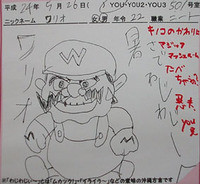 平成 24年 9月 26日 YOU・YOU2・YOU3 501号室
ニックネーム ワリオ 女・男 年令 22 職業 ニート
ワリオ
暑さでわじわじー
キノコのかわりに
マジック
マッシュルーム
たべちゃった!
W
※“わじわじぃ~”とは“ムカック!・イライラ~”などの意味の沖縄方言です